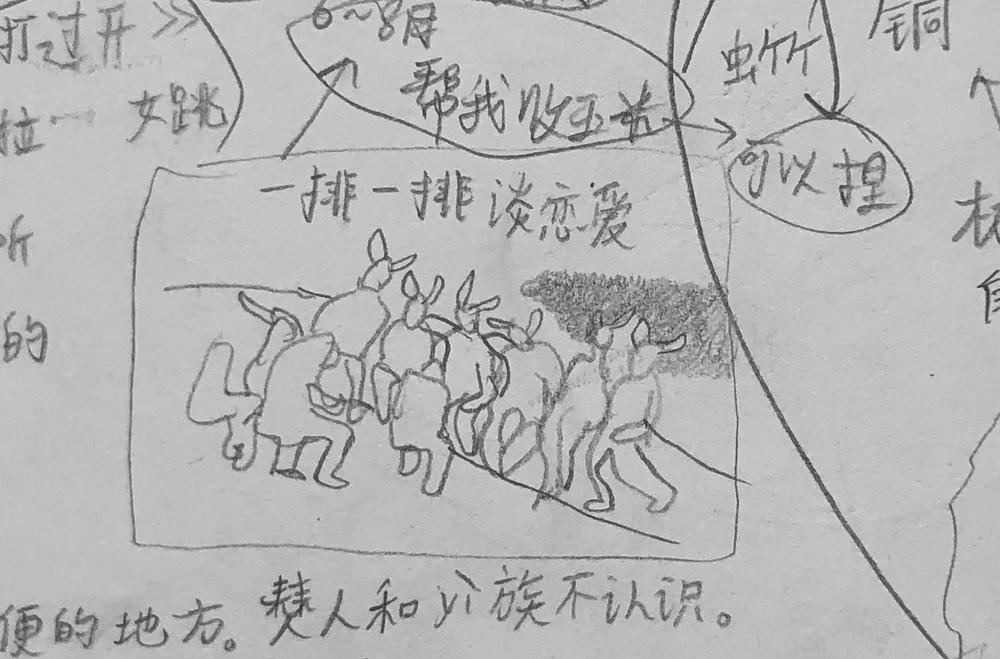 打过开
拉 女跳
6～8月
帮我收玉米
虫竹
铜
可以捏
一排一排谈恋爱
听
的
便的地方。僰人和 族不认识。